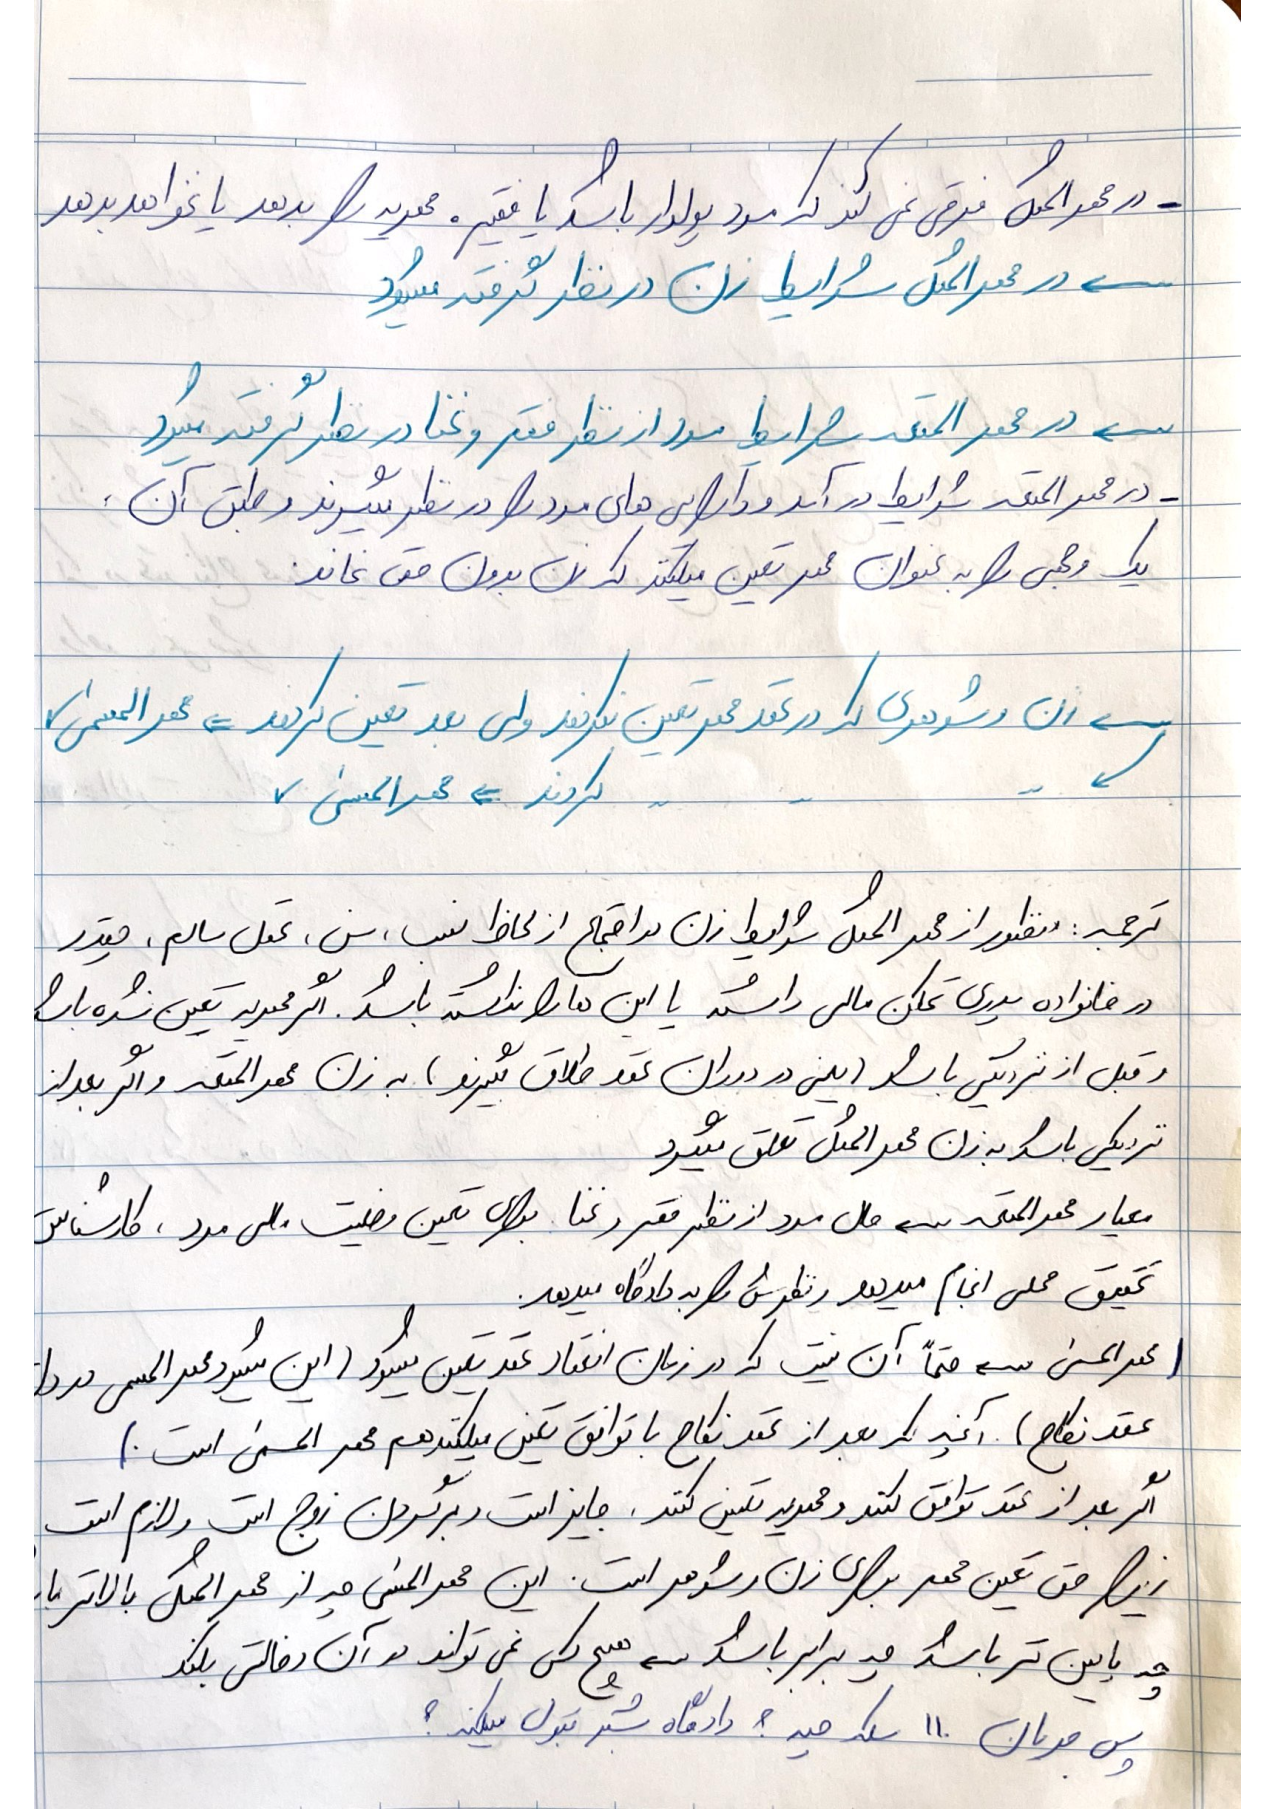 - در مهرالمثل فرقی نمی کند که مرد پولدار باشد یا فقیر. مهریه را بدهد یا نخواهد بدهد
← در مهرالمثل شرایط زن در نظر گرفته میشود
← در مهر المتعه شرایط مرد از نظر فقر و غنا در نظر گرفته میشود
- در مهر المتعه شرایط درآمد و دارایی های مرد را در نظر میگیرند و طبق آن،
یک وجهی را به عنوان مهر تعین میکنند که زن بدون حق نماند.
← زن و شوهری که در عقد مهر تعین نکردند ولی بعد تعین کردند ⇐ مهر المسمیٰ ✓
← " " " کردند ⇐ مهر المسمیٰ ✓
ترجمه: منظور از مهر المثل شرایط زن در اجتماع از لحاظ نسب، سن، عقل سالم، چقدر
در خانواده پدری تمکن مالی داشته یا این ها را نداشته باشد. اگر مهریه تعین نشده باشد
و قبل از نزدیکی باشد (یعنی در دوران عقد طلاق بگیرند)، به زن مهر المتعه و اگر بعد از
نزدیکی باشد به زن مهر المثل تعلق میگیرد
معیار مهر المتعه ← حال مرد از نظر فقر و غنا. برای تعین وضعیت مالی مرد، کارشناس
تحقیق محلی انجام میدهد و نظرش را به دادگاه میدهد.
(مهر المسمیٰ ← حتماً آن نیست که در زمان انعقاد عقد تعین میشود (این میشود مهر المسمی در
عقد نکاح). آنچه که بعد از عقد نکاح با توافق تعین میکنند هم مهر المسمیٰ است.)
اگر بعد از عقد توافق کنند و مهریه تعین کنند، جایز است و برگردن زوج است و لازم است
زیرا حق تعین مهر برای زن و شوهر است. این مهر المسمیٰ چه از مهر المثل بالاتر باشد
چه پایین تر باشد چه برابر باشد ← هیچ کس نمی تواند در آن دخالتی بکند
پس جریان ۱۱۰ سکه چیه؟ دادگاه بیشتر قبول میکند؟